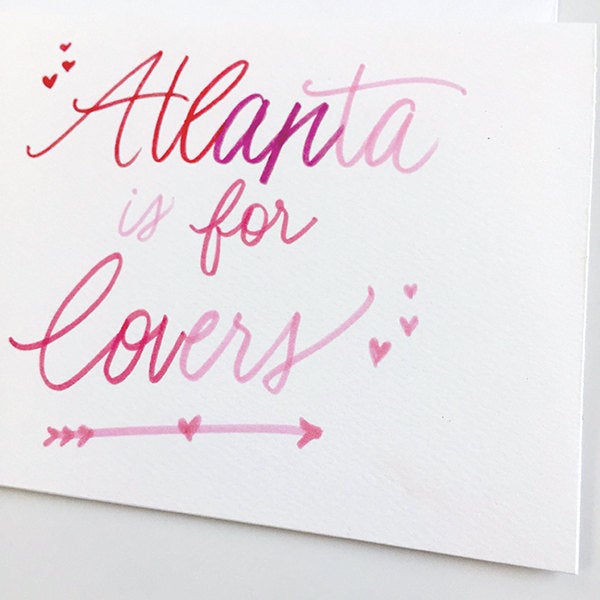 Atlanta
is for
lovers